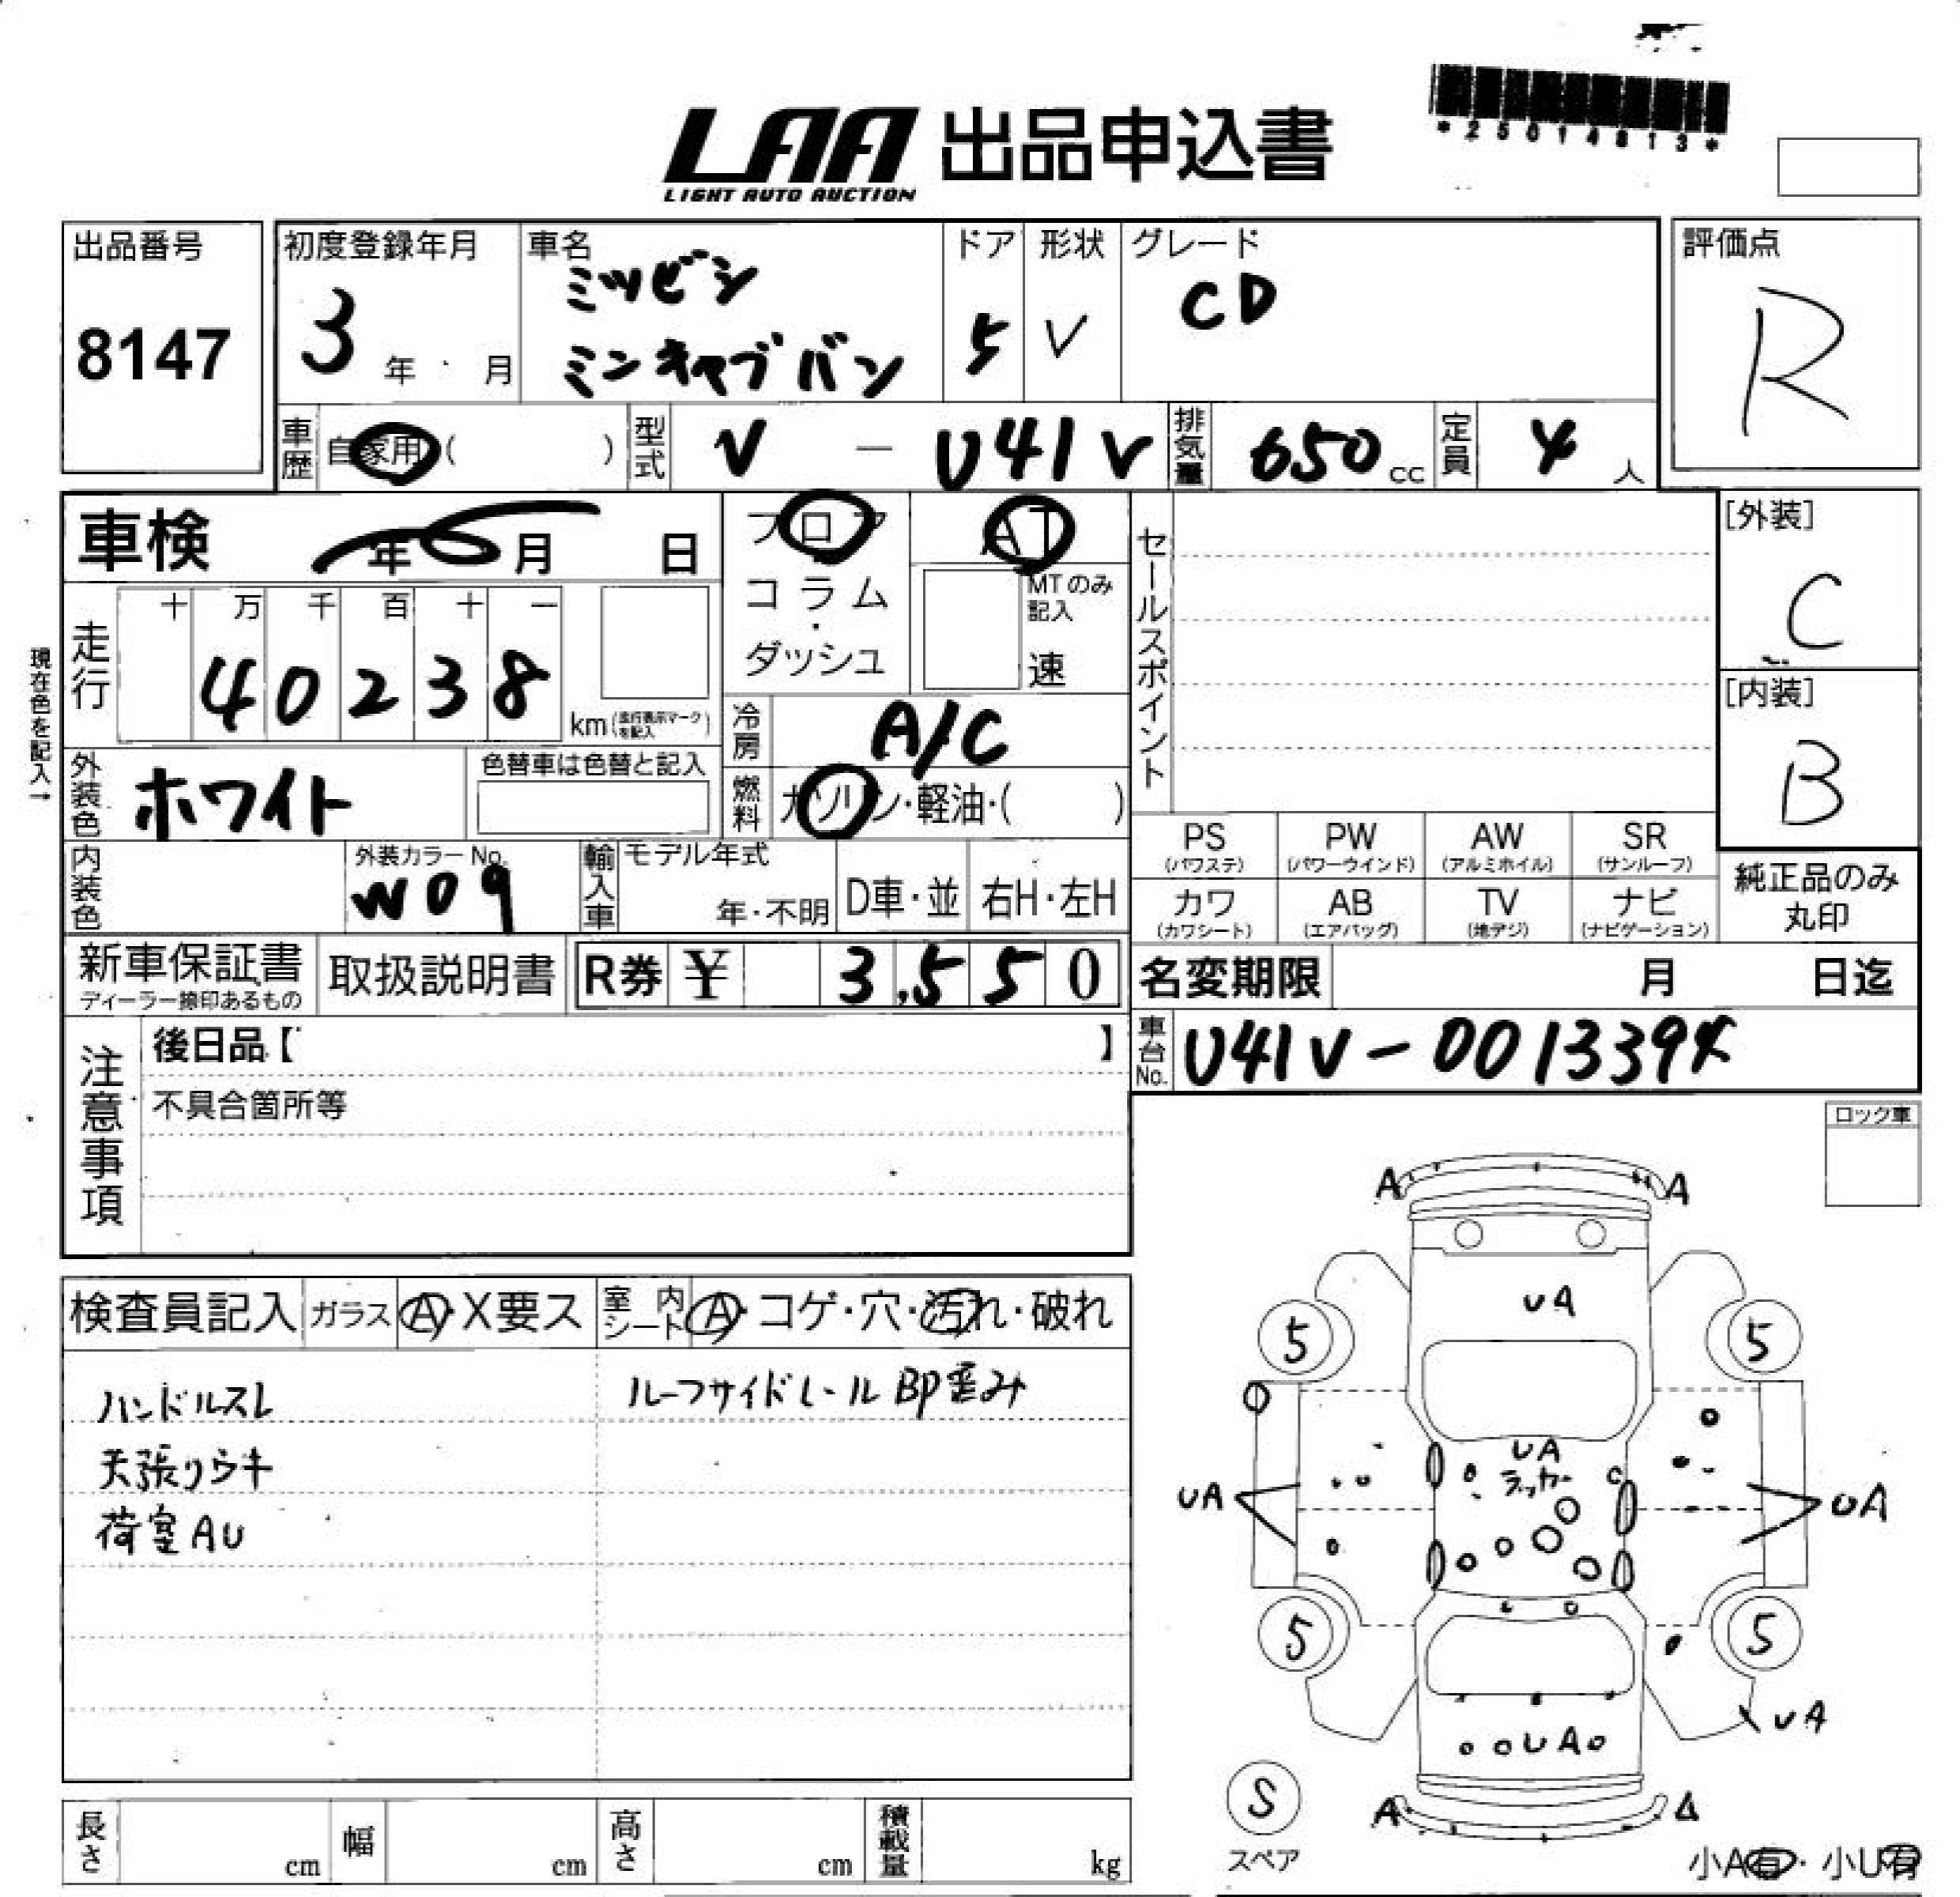 *25014813*
LAA 出品申込書
LIGHT AUTO AUCTION
出品番号
8147
初度登録年月
3 年 ・ 月
車名
ミツビシ
ミンキャブバン
ドア
5
形状
V
グレード
CD
評価点
R
車歴 自家用 ( )
型式 V - U41V
排気量 650 cc
定員 4 人
車検 年 月 日
フロア
コラム
・
ダッシュ
AT
MTのみ
記入
速
セールスポイント
[外装]
C
[内装]
B
現在色を記入→
走行
十 万 千 百 十 一
4 0 2 3 8
km (走行表示マークを記入)
冷房 A/C
燃料 ガソリン・軽油・( )
外装色 ホワイト
色替車は色替と記入
内装色
外装カラーNo.
W09
輸入車
モデル年式
年・不明
D車・並
右H・左H
PS
(パワステ)
PW
(パワーウインド)
AW
(アルミホイル)
SR
(サンルーフ)
カワ
(カワシート)
AB
(エアバッグ)
TV
(地デジ)
ナビ
(ナビゲーション)
純正品のみ
丸印
新車保証書
ディーラー捺印あるもの
取扱説明書
R券 ¥ 3,550
名変期限 月 日迄
車台No. U41V-0013394
注意事項
後日品【 】
不具合箇所等
ロック車
検査員記入
ガラス A・X要ス
室内シート A・コゲ・穴・汚れ・破れ
ハンドルスレ
天張りウキ
荷室AU
ルーフサイドレールBP歪み
A A
UA
5 5
UA
ラッカー
UA UA
5 5
UA
UA
A A
S
スペア
小A有・小U有
長さ cm
幅 cm
高さ cm
積載量 kg